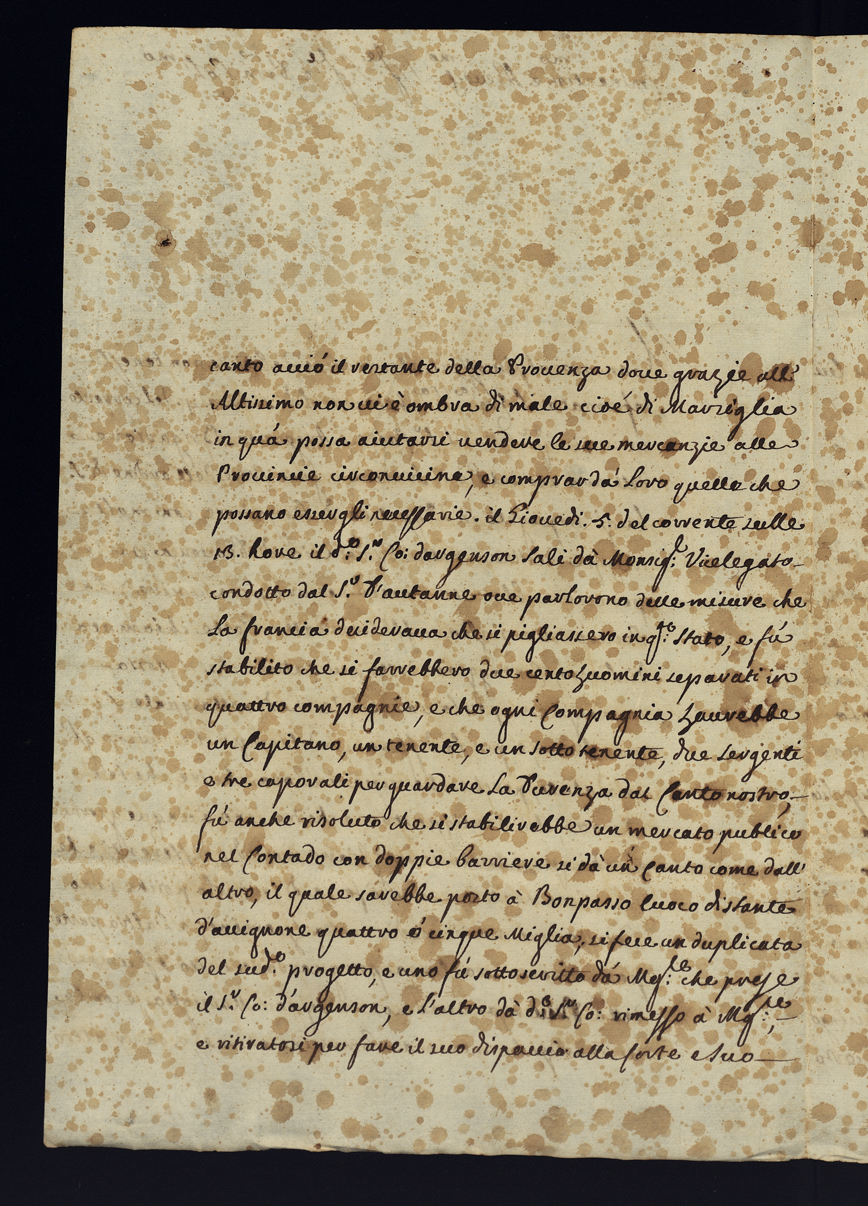 canto acciò il restante della Provenza dove grazie all'
Altissimo non vi è ombra di male cioé di Marsiglia
in quá possa aiutarsi vendere le sue mercanzie alle
Provincie circonvicine, e comprar dá Loro quelle che
possano essergli necessarie. il Giovedi. 5. del corrente sulle
13. hore il d.º S.r Co: dargenson Sali dà Monsig.r Vicelegato
condotto dal S.r Vautanne ove parlorono delle misure che
La francia desiderava che si pigliassero in q.to Stato, e fú
stabilito che si farrebbero due cento huomini separati in
quattro compagnie, e che ogni Compagnia haurebbe
un Capitano, un tenente, e un sotto tenente, due sergenti
e tre caporali per guardare La Durenza dal Canto nostro,
fú anche risoluto che si stabilirebbe un mercato publico
nel Contado con doppie barriere si dà un Canto come dall'
altro, il quale sarebbe posto à Bonpasso luoco distante
d'avignone quattro ó cinque Miglia, si fece un duplicata
del sud.º progetto, e uno fú sottoscritto dá Mg.re che prese
il S.r Co: d'argenson, e l'altro dà d.º S.r Co: rimesso à Mg.re,
e ritiratosi per fare il suo dispaccio alla Corte e Suo